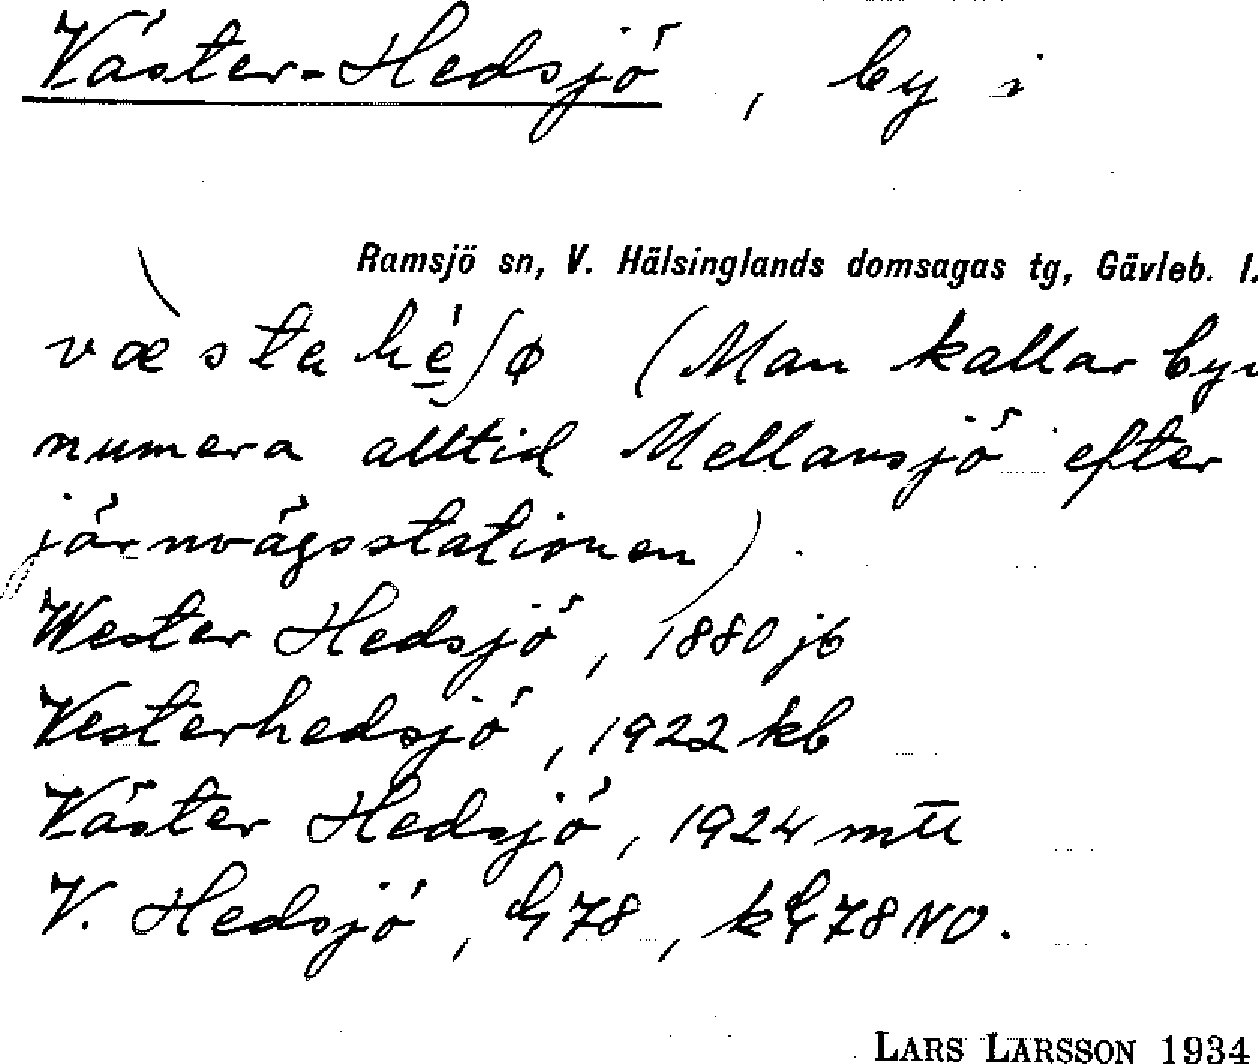 Väster-Hedsjö, by i
Ramsjö sn, V. Hälsinglands domsagas tg, Gävleb. l.
(Man kallar
numera alltid Mellansjö efter
järnvägsstationen).
Wester Hedsjö, 1880 jb
Vesterhedsjö, 1922 kb
Väster Hedsjö, 1924 mtl
V. Hedsjö, G 78, kG 78 NO.
LARS LARSSON 1934